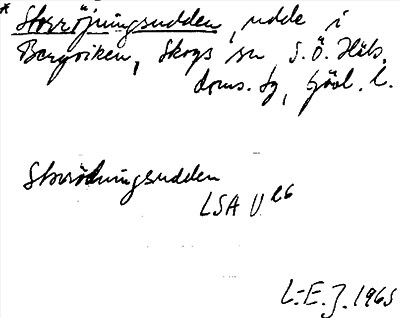 * Storröjningsudden, udde i
Bergviken, Skogs sn, S.Ö. Häls.
doms. tg, Gävl. l.
Storrödningsudden
LSA U 26
L.-E. J. 1965